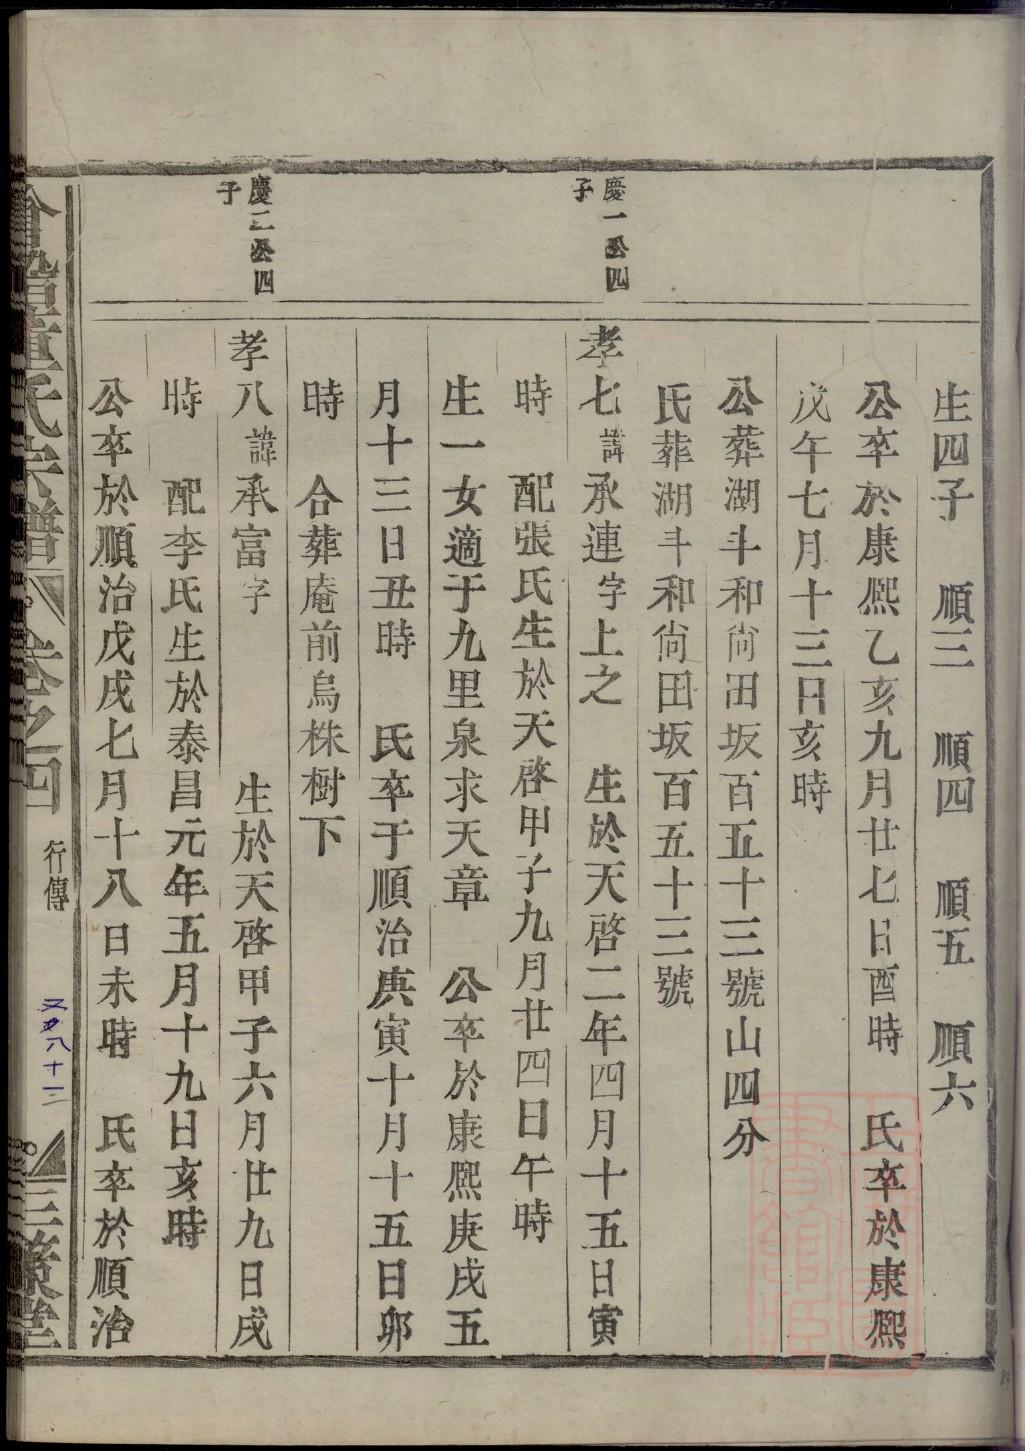 生四子　順三　順四　順五　順六
公卒於康熙乙亥九月廿七日酉時　氏卒於康熙
戊午七月十三日亥時
公葬湖斗和尙田坂百五十三號山四分
氏葬湖斗和尙田坂百五十三號
慶一公四
子
孝七諱承連字上之　生於天啓二年四月十五日寅
時　配張氏生於天啓甲子九月廿四日午時
生一女適于九里泉求天章　公卒於康熙庚戌五
月十三日丑時　氏卒于順治庚寅十月十五日卯
時　合葬庵前烏株樹下
慶二公四
子
孝八諱承富字　生於天啓甲子六月廿九日戌
時　配李氏生於泰昌元年五月十九日亥時
公卒於順治戊戌七月十八日未時　氏卒於順治
童氏宗譜　卷之四　行傳　三策堂